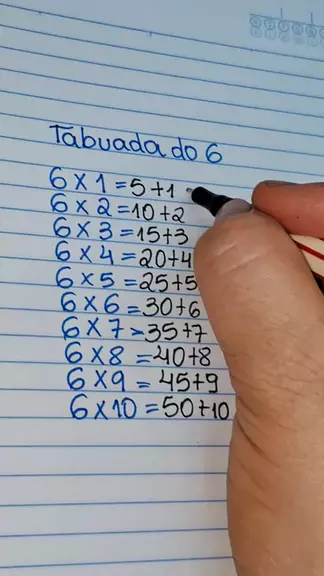 Tabuada do 6
6 x 1 = 5+1
6 x 2 = 10+2
6 x 3 = 15+3
6 x 4 = 20+4
6 x 5 = 25+5
6 x 6 = 30+6
6 x 7 = 35+7
6 x 8 = 40+8
6 x 9 = 45+9
6 x 10 = 50+10